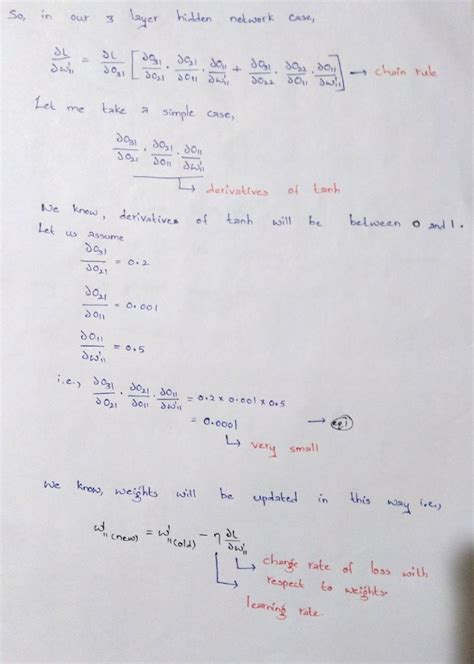 So, in our 3 layer hidden network case,
∂L/∂w'₁₁ = ∂L/∂O₃₁ [ ∂O₃₁/∂O₂₁ · ∂O₂₁/∂O₁₁ · ∂O₁₁/∂w'₁₁ + ∂O₃₁/∂O₂₂ · ∂O₂₂/∂O₁₁ · ∂O₁₁/∂w'₁₁ ] → chain rule
Let me take a simple case,
∂O₃₁/∂O₂₁ · ∂O₂₁/∂O₁₁ · ∂O₁₁/∂w'₁₁
↳ derivatives of tanh
We know, derivatives of tanh will be between 0 and 1.
Let us assume
∂O₃₁/∂O₂₁ = 0.2
∂O₂₁/∂O₁₁ = 0.001
∂O₁₁/∂w'₁₁ = 0.5
i.e., ∂O₃₁/∂O₂₁ · ∂O₂₁/∂O₁₁ · ∂O₁₁/∂w'₁₁ = 0.2 x 0.001 x 0.5
= 0.0001 → eq1
↳ very small
We know, weights will be updated in this way i.e.,
w'₁₁(new) = w'₁₁(old) - η ∂L/∂w'₁₁
↳ change rate of loss with
respect to weights.
↳ learning rate.